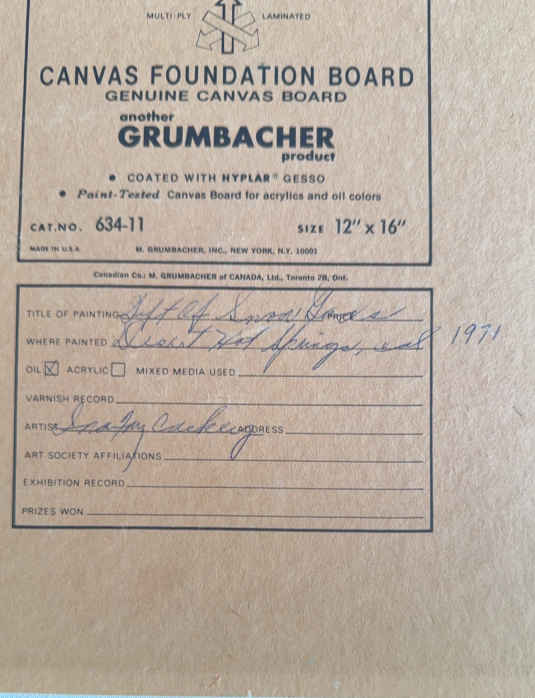 MULTI-PLY LAMINATED
CANVAS FOUNDATION BOARD
GENUINE CANVAS BOARD
another
GRUMBACHER
product
• COATED WITH HYPLAR® GESSO
• Paint-Tested Canvas Board for acrylics and oil colors
CAT.NO. 634-11 SIZE 12" x 16"
MADE IN U.S.A. M. GRUMBACHER, INC., NEW YORK, N.Y. 10001
Canadian Co.: M. GRUMBACHER of CANADA, Ltd., Toronto 2B, Ont.
TITLE OF PAINTING Of Snow PRICE
WHERE PAINTED Desert Hot Springs, Cal 1971
OIL ACRYLIC MIXED MEDIA USED
VARNISH RECORD
ARTIST ADDRESS
ART SOCIETY AFFILIATIONS
EXHIBITION RECORD
PRIZES WON